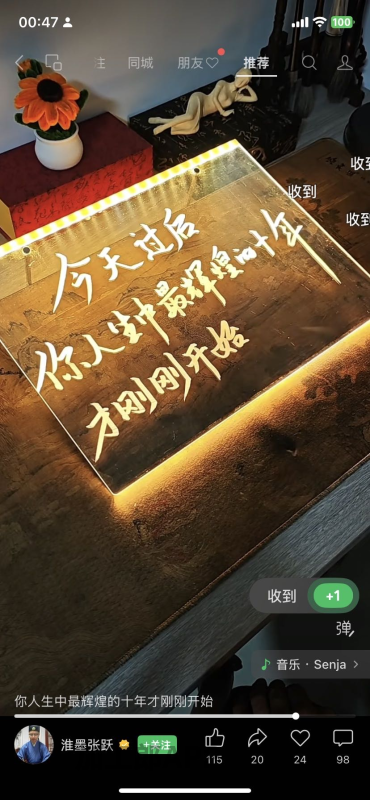 00:47
100
注 同城 朋友 推荐
收到
收到
今天过后
你人生中最辉煌的十年
才刚刚开始
收到 +1
弹
音乐 · Senja
你人生中最辉煌的十年才刚刚开始
淮墨张跃 +关注
115 20 24 98